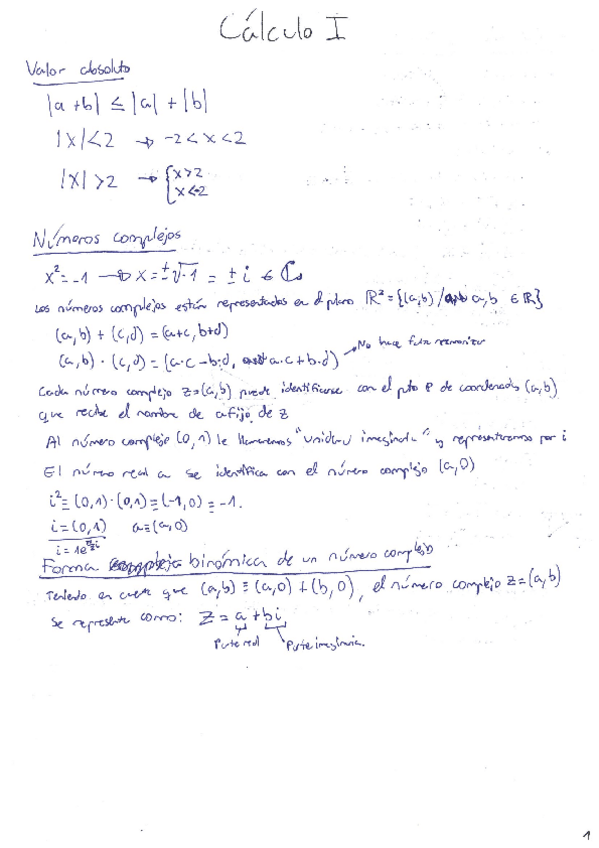 Cálculo I
Valor absoluto
|a+b| ≤ |a| + |b|
|x|<2 → -2<x<2
|x|>2 → { x>2
x<-2
Números complejos
x²=-1 → x=±√-1 = ± i ∈ ℂ
Los números complejos están representados en el plano ℝ²={(a,b) / a,b ∈ ℝ}
(a,b) + (c,d) = (a+c, b+d)
(a,b) · (c,d) = (a·c-b·d, a·c+b·d) → No hace falta memorizar
Cada número complejo z=(a,b) puede identificarse con el pto P de coordenadas (a,b)
que recibe el nombre de afijo de z
Al número complejo (0,1) le llamaremos "unidad imaginaria" y representaremos por i
El número real a se identifica con el número complejo (a,0)
i²≡(0,1)·(0,1)≡(-1,0)≡-1.
i=(0,1) a≡(a,0)
i=1e^{π/2 i}
Forma binómica de un número complejo
Teniendo en cuenta que (a,b) ≡ (a,0) + (b,0), el número complejo z=(a,b)
se representa como: z = a + bi
Parte real Parte imaginaria.
1